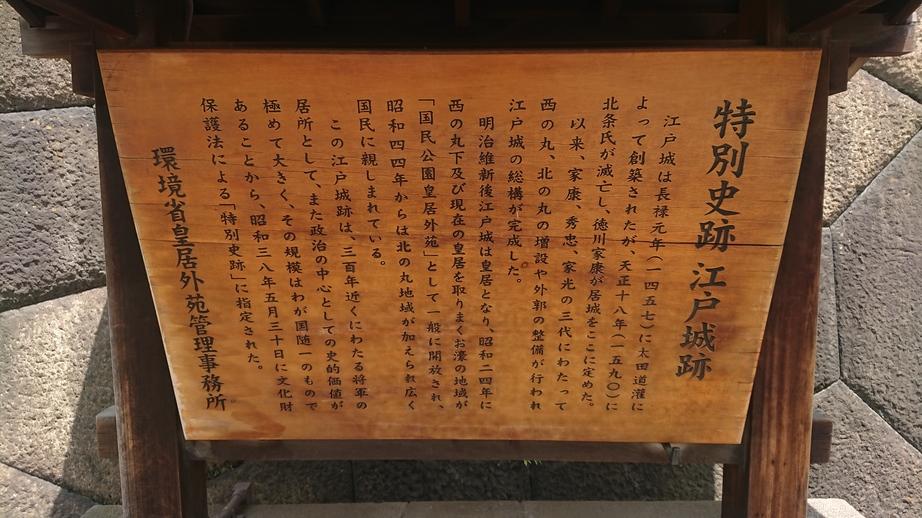 特別史跡 江戸城跡
江戸城は長禄元年(一四五七)に太田道灌に
よって創築されたが、天正十八年(一五九〇)に
北条氏が滅亡し、徳川家康が居城をここに定めた。
以来、家康、秀忠、家光の三代にわたって
西の丸、北の丸の増設や外郭の整備が行われ
江戸城の総構が完成した。
明治維新後江戸城は皇居となり、昭和二四年に
西の丸下及び現在の皇居を取りまくお濠の地域が
「国民公園皇居外苑」として一般に開放され、
昭和四四年からは北の丸地域が加えられ広く
国民に親しまれている。
この江戸城跡は、三百年近くにわたる将軍の
居所として、また政治の中心としての史的価値が
極めて大きく、その規模はわが国随一のもので
あることから、昭和三八年五月三十日に文化財
保護法による「特別史跡」に指定された。
環境省皇居外苑管理事務所